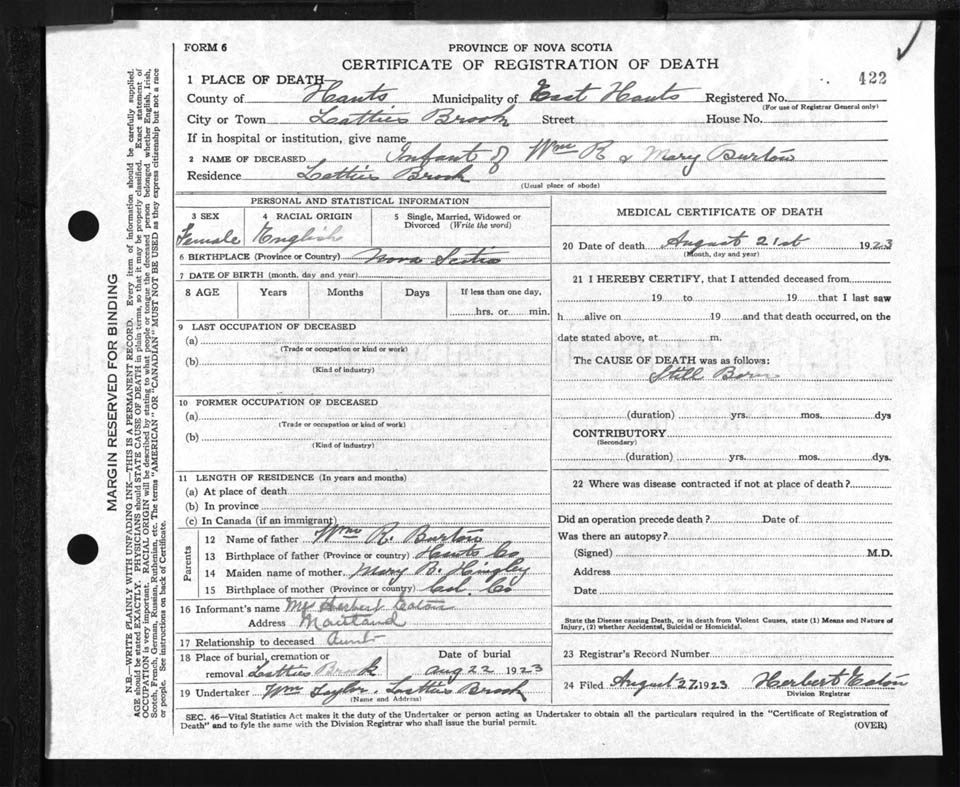 FORM 6
PROVINCE OF NOVA SCOTIA
CERTIFICATE OF REGISTRATION OF DEATH
422
1 PLACE OF DEATH
County of Hants Municipality of East Hants Registered No.
(For use of Registrar General only)
City or Town Latties Brook Street House No.
If in hospital or institution, give name
2 NAME OF DECEASED Infant of Wm R & Mary Burton
Residence Latties Brook
(Usual place of abode)
PERSONAL AND STATISTICAL INFORMATION
3 SEX 4 RACIAL ORIGIN 5 Single, Married, Widowed or Divorced (Write the word)
Female English
6 BIRTHPLACE (Province or Country) Nova Scotia
7 DATE OF BIRTH (month, day and year)
8 AGE Years Months Days If less than one day,
hrs. or min.
9 LAST OCCUPATION OF DECEASED
(a)
(Trade or occupation or kind or work)
(b)
(Kind of industry)
10 FORMER OCCUPATION OF DECEASED
(a)
(Trade or occupation or kind of work)
(b)
(Kind of industry)
11 LENGTH OF RESIDENCE (In years and months)
(a) At place of death
(b) In province
(c) In Canada (if an immigrant)
Parents
12 Name of father Wm R. Burton
13 Birthplace of father (Province or country) Hants Co
14 Maiden name of mother Mary B. Hingley
15 Birthplace of mother (Province or country) Col. Co
16 Informant's name Herbert Eaton
Address Maitland
17 Relationship to deceased Aunt
18 Place of burial, cremation or removal Latties Brook
Date of burial
Aug 22 1923
19 Undertaker Wm Taylor. Latties Brook
(Name and Address)
MEDICAL CERTIFICATE OF DEATH
20 Date of death August 21st 1923
(Month, day and year)
21 I HEREBY CERTIFY, that I attended deceased from
19 to 19 that I last saw
h alive on 19 and that death occurred, on the
date stated above, at m.
The CAUSE OF DEATH was as follows:
Still Born
(duration) yrs. mos. dys
CONTRIBUTORY
(Secondary)
(duration) yrs. mos. dys.
22 Where was disease contracted if not at place of death?
Did an operation precede death? Date of
Was there an autopsy?
(Signed) M.D.
Address
Date
State the Disease causing Death, or in death from Violent Causes, state (1) Means and Nature of
Injury, (2) whether Accidental, Suicidal or Homicidal.
23 Registrar's Record Number
24 Filed August 27, 1923 Herbert Eaton
Division Registrar
SEC. 46—Vital Statistics Act makes it the duty of the Undertaker or person acting as Undertaker to obtain all the particulars required in the "Certificate of Registration of
Death" and to fyle the same with the Division Registrar who shall issue the burial permit.
(OVER)
MARGIN RESERVED FOR BINDING
N.B.—WRITE PLAINLY WITH UNFADING INK—THIS IS A PERMANENT RECORD. Every item of information should be carefully supplied.
AGE should be stated EXACTLY. PHYSICIANS should STATE CAUSE OF DEATH in plain terms, so that it may be properly classified. Exact statement of
OCCUPATION is very important. RACIAL ORIGIN will be described by stating to what people or tongue the deceased person belonged whether English, Irish,
Scotch, French, German, Russian, Ruthenian, etc. The terms "AMERICAN" OR "CANADIAN" MUST NOT BE USED as they express citizenship but not a race
or people. See instructions on back of Certificate.